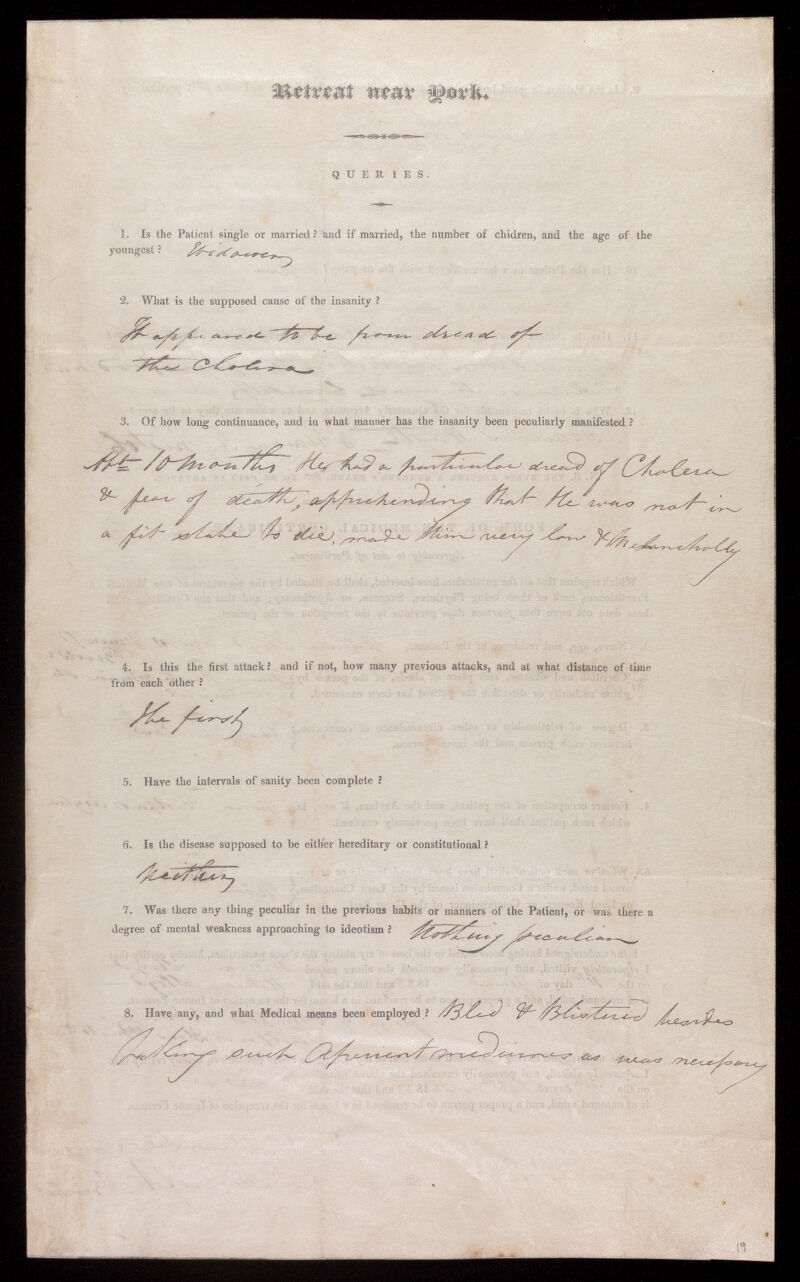 Retreat near York.
QUERIES.
1. Is the Patient single or married? and if married, the number of chidren, and the age of the
youngest? Widower
2. What is the supposed cause of the insanity?
It appeared to be from dread of
the Cholera
3. Of how long continuance, and in what manner has the insanity been peculiarly manifested?
Abt 10 Months He had a particular dread of Cholera
& fear of death, apprehending that He was not in
a fit state to die, made Him very low & Melancholly
4. Is this the first attack? and if not, how many previous attacks, and at what distance of time
from each other?
The first
5. Have the intervals of sanity been complete?
6. Is the disease supposed to be either hereditary or constitutional?
Neither
7. Was there any thing peculiar in the previous habits or manners of the Patient, or was there a
degree of mental weakness approaching to ideotism? Nothing peculiar
8. Have any, and what Medical means been employed? Bled & Blistered besides
taking such Aperient medicines as was necessary
19